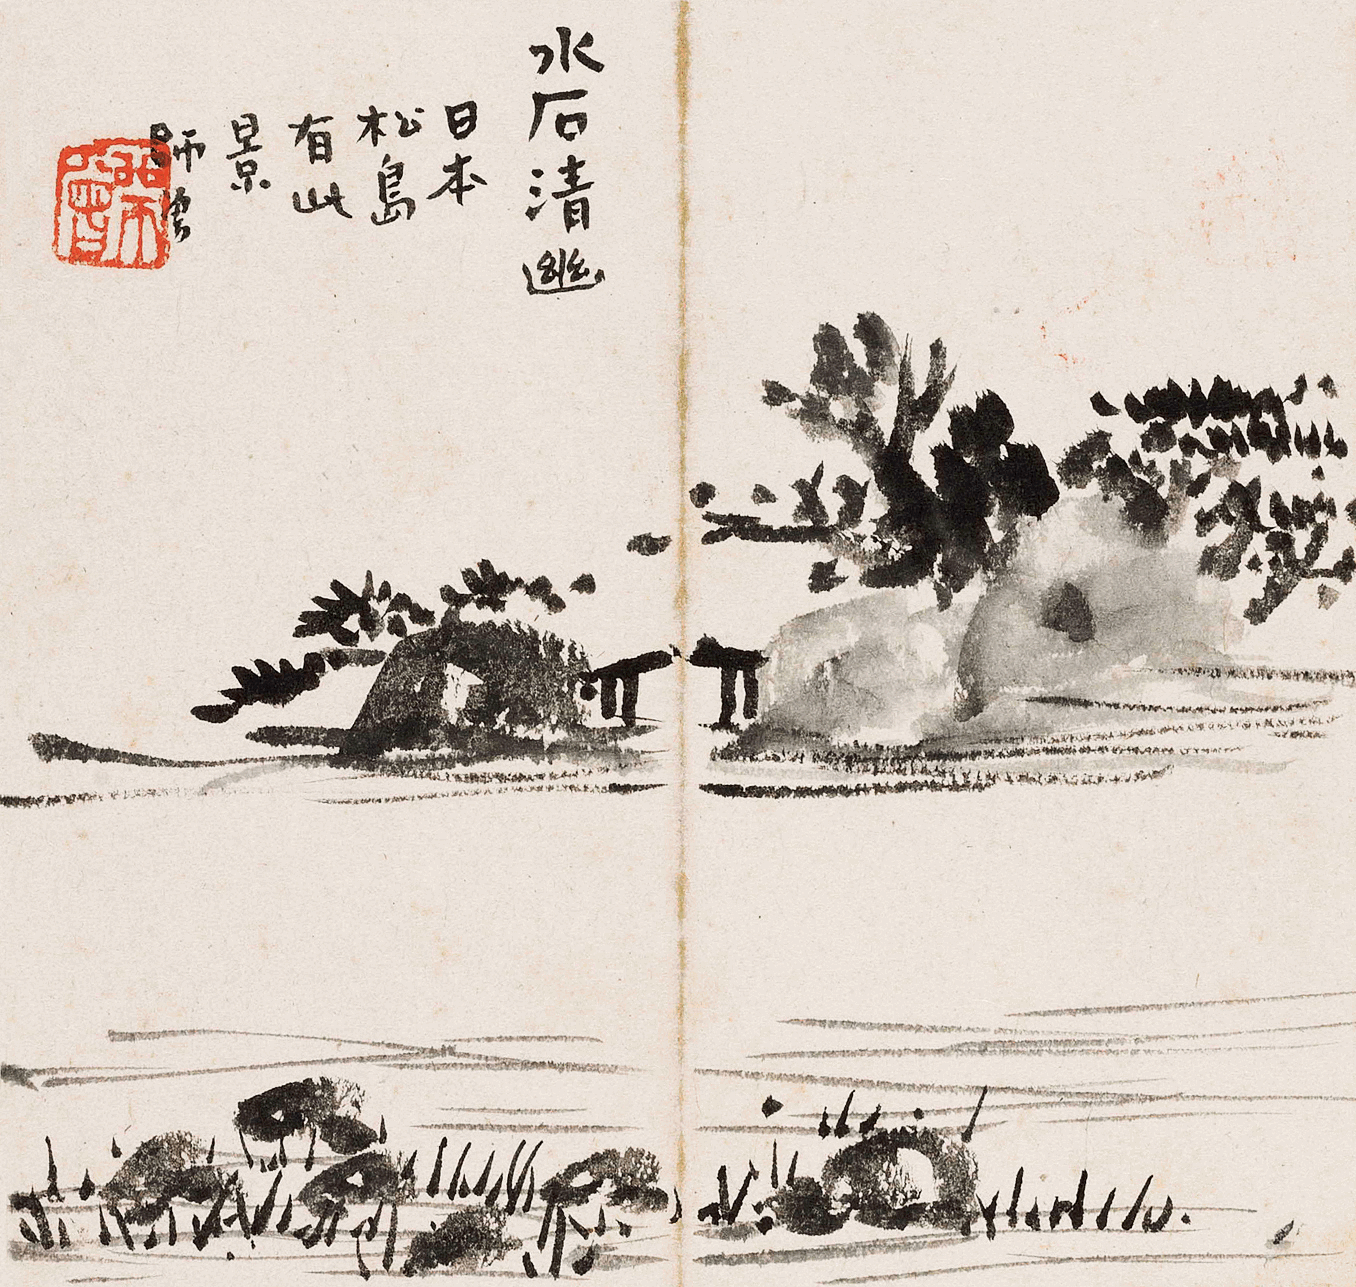 水石清幽
日本
松島
有此
景
師曾
師曾